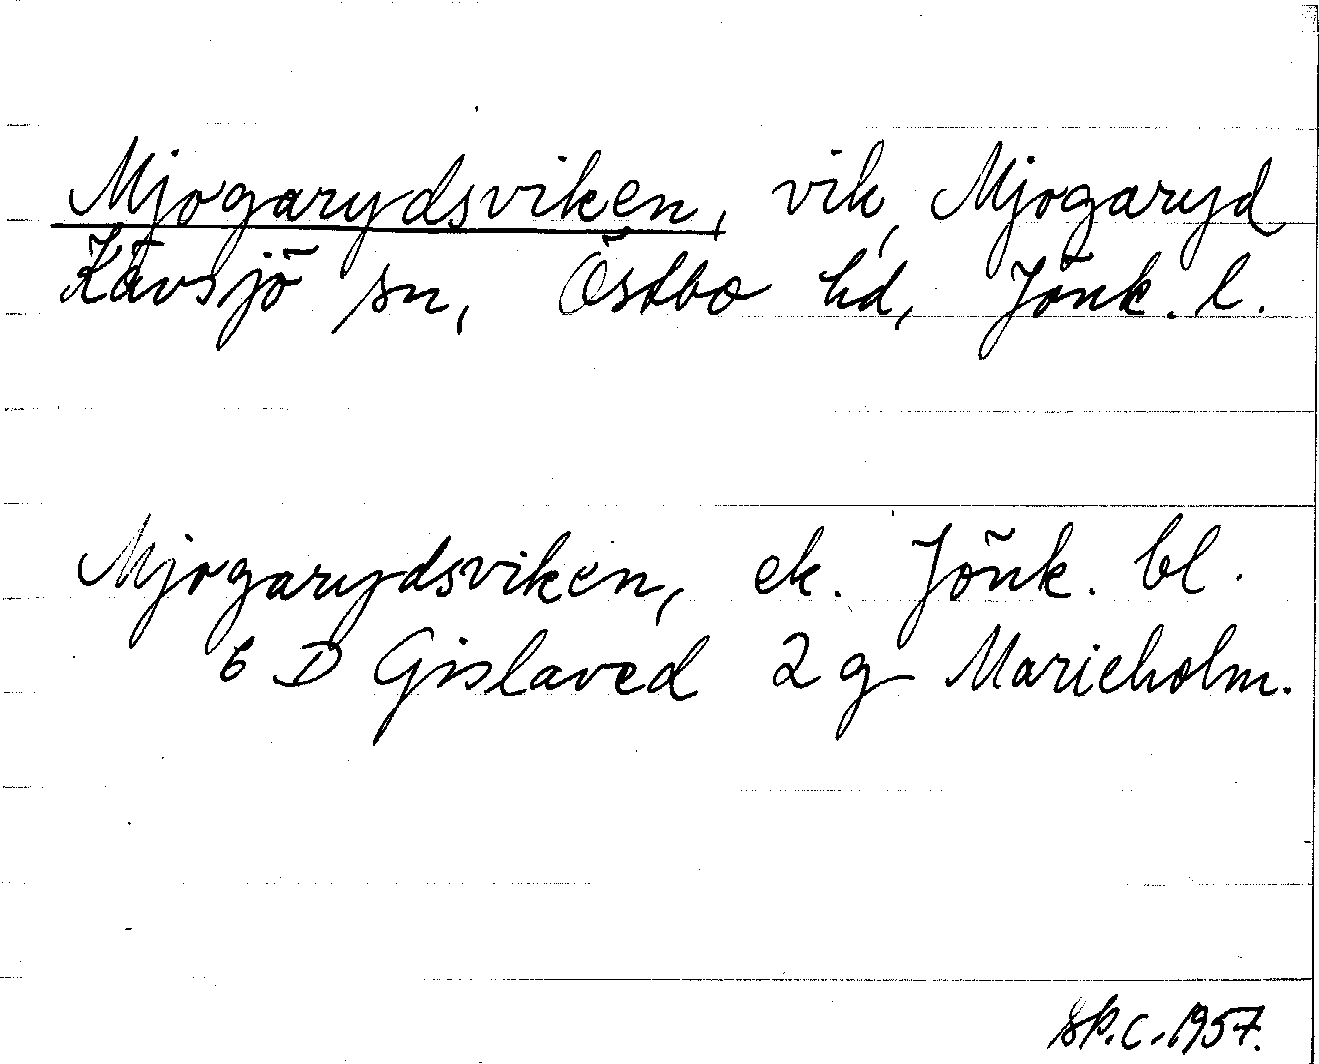 Mjogarydsviken, vik, Mjogaryd
Kävsjö sn, Östbo hd, Jönk. l.
Mjogarydsviken, ek. Jönk. bl.
6 D Gislaved 2 g Marieholm.
Sk.C. 1957.